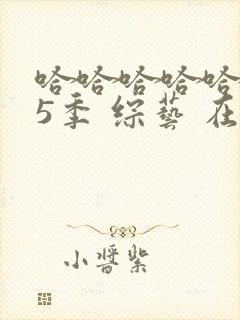 哈哈哈哈哈
5季 综艺 在
小酱紫